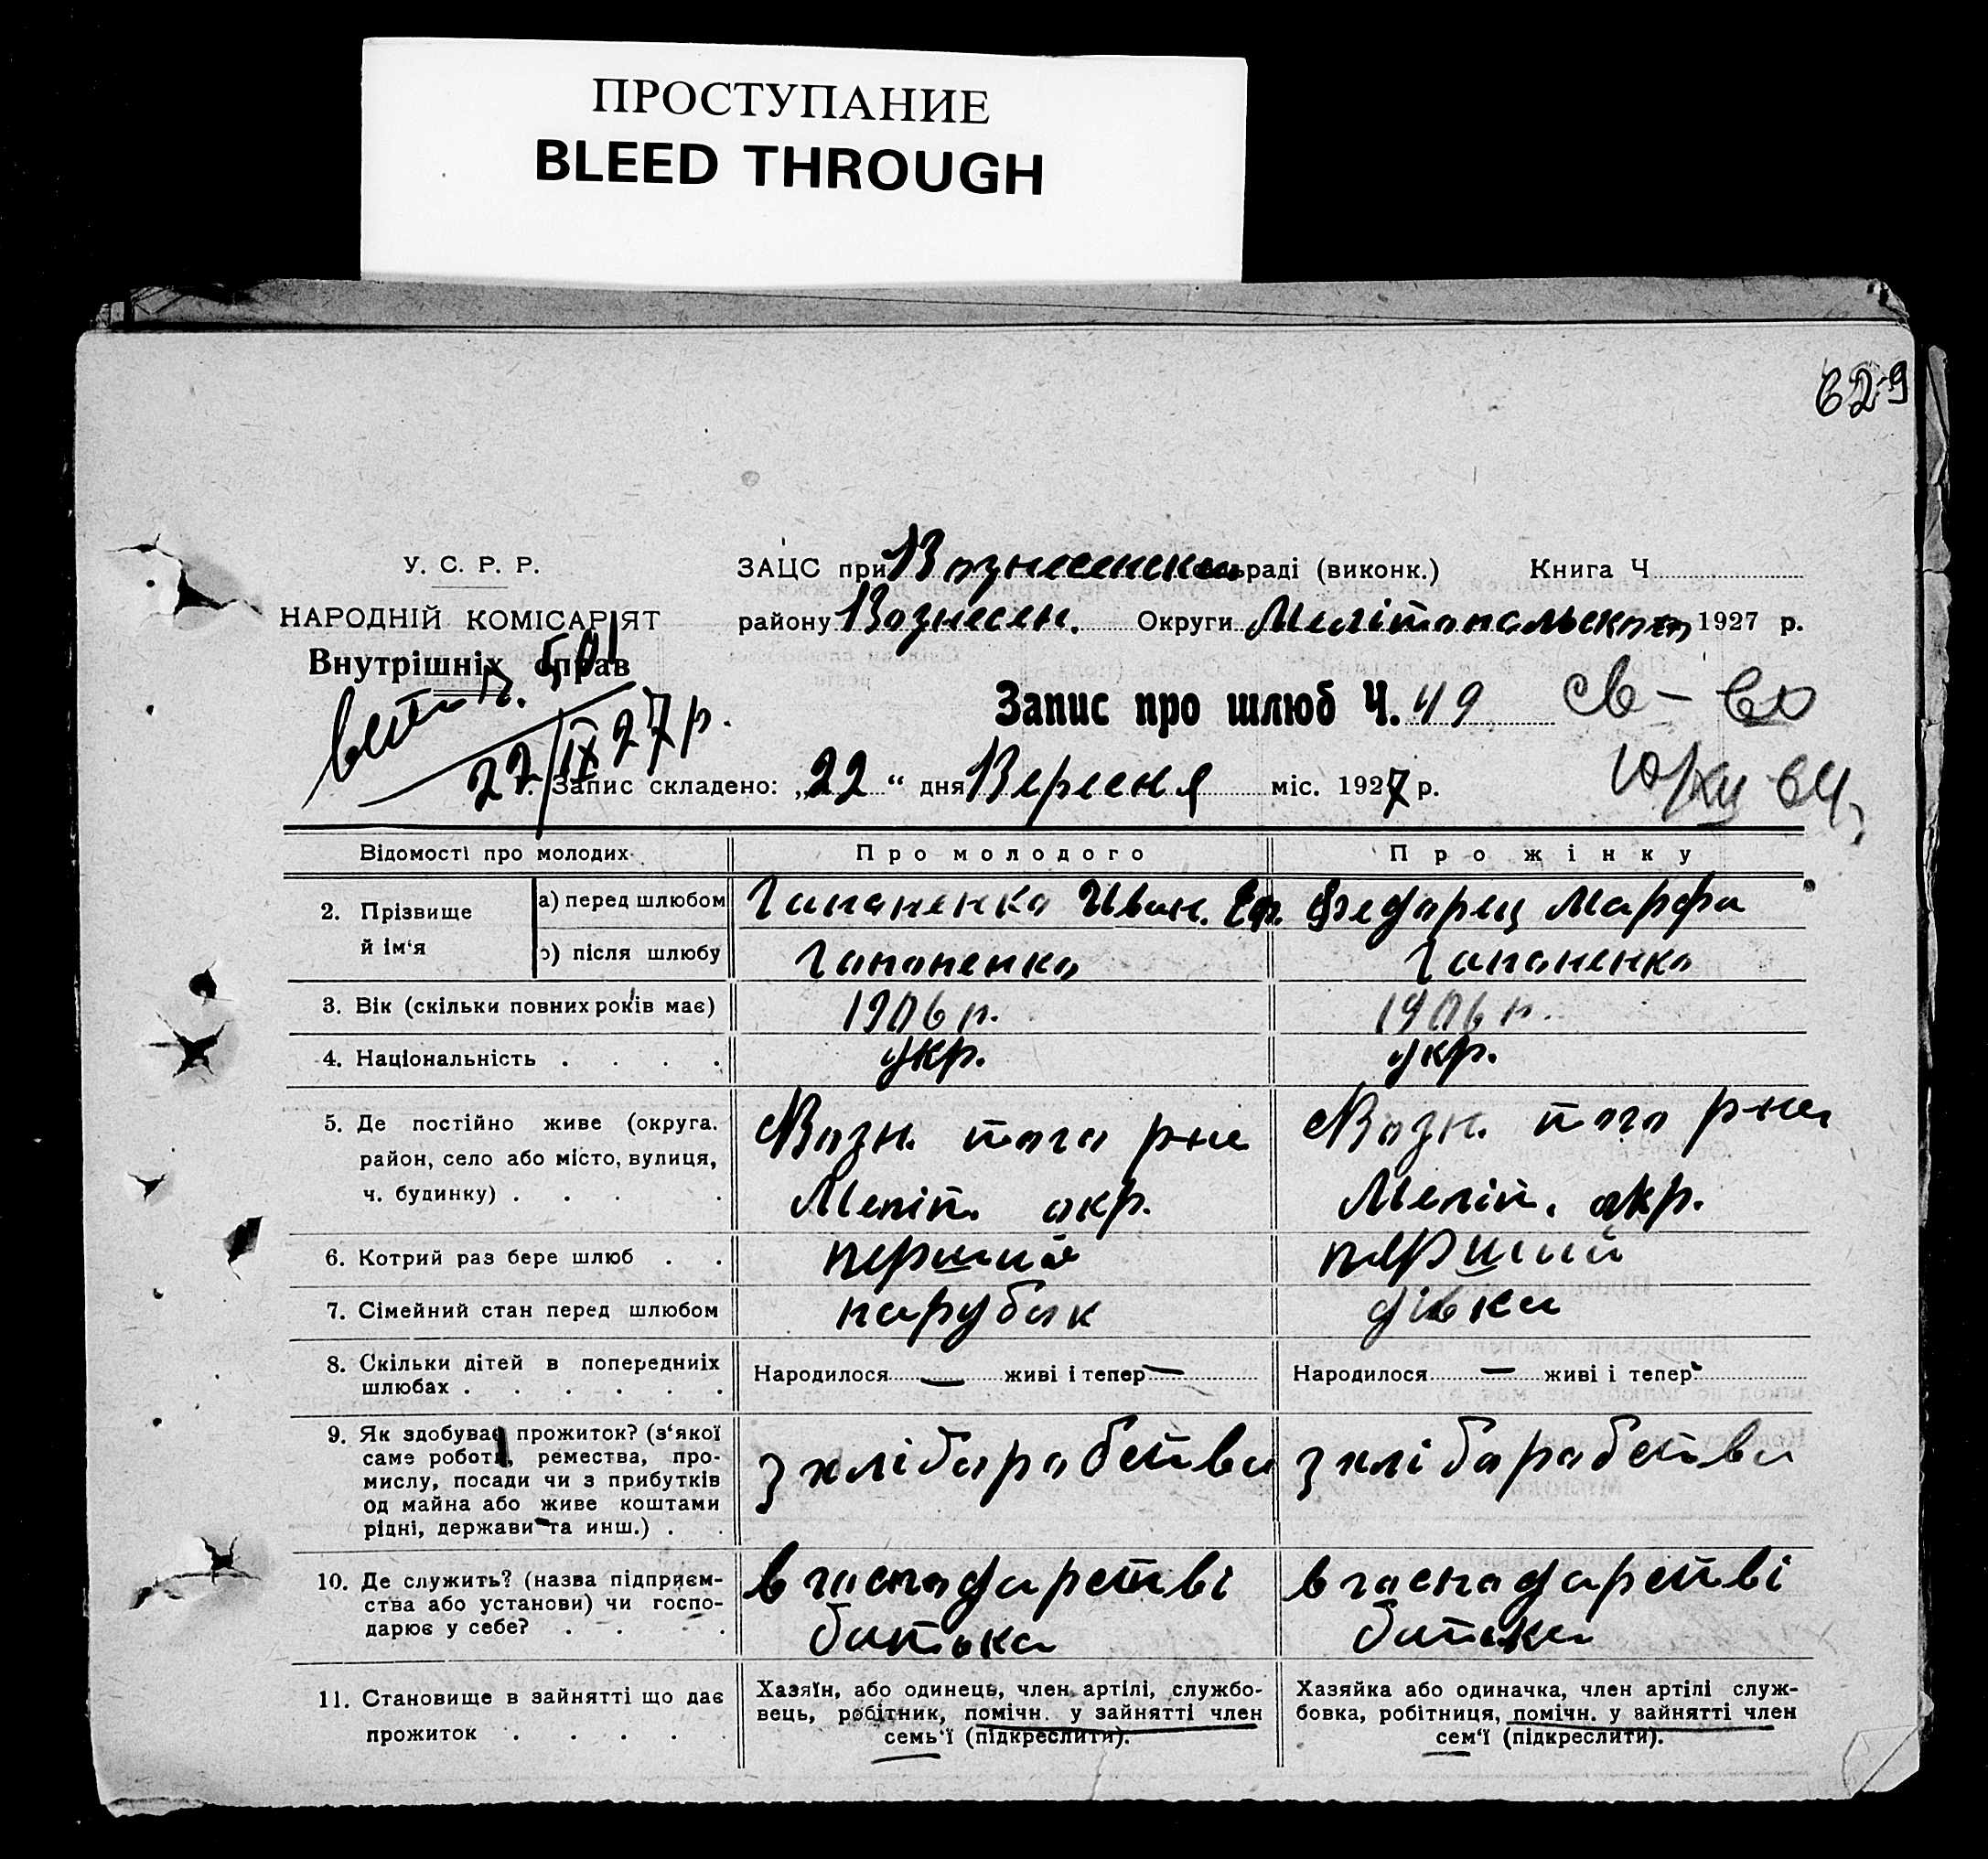 ПРОСТУПАНИЕ
BLEED THROUGH
629
У. С. Р. Р.
НАРОДНІЙ КОМІСАРІЯТ
Внутрішніх справ
501
22/IX 27 р.
ЗАЦС при Вознесенск раді (виконк.) Книга Ч
району Вознесен. Округи Мелітопольскої 1927 р.
Запис про шлюб Ч. 49
Запис складено: „22“ дня Вересня міс. 1927 р.
Відомості про молодих Про молодого Про жінку
2. Прізвище й ім‘я
а) перед шлюбом Гапоненко Иван. Еф. Федорец Марфа
б) після шлюбу Гапоненко Гапоненко
3. Вік (скільки повних років має) 1906 р. 1906 р.
4. Національність . . . . укр. укр.
5. Де постійно живе (округа, район, село або місто, вулиця, ч. будинку) . . . .
Возн. того р-не Возн. того р-не
Меліт. окр. Меліт. окр.
6. Котрий раз бере шлюб . . перший перший
7. Сімейний стан перед шлюбом парубок дівка
8. Скільки дітей в попередніх шлюбах . . . . . .
Народилося — живі і тепер — Народилося — живі і тепер -
9. Як здобуває прожиток? (з‘якої
саме роботи, ремества, про-
мислу, посади чи з прибутків
од майна або живе коштами
рідні, держави та инш.) . .
з хліборобства з хліборобства
10. Де служить? (назва підприєм-
ства або установи) чи госпо-
дарює у себе? . . . .
в господарстві в господарстві
батька батька
11. Становище в зайнятті що дає
прожиток . . . . .
Хазяїн, або одинець, член артілі, службо-
вець, робітник, помічн. у зайнятті член
семь‘ї (підкреслити).
Хазяйка або одиначка, член артілі служ-
бовка, робітниця, помічн. у зайнятті член
сем‘ї (підкреслити).